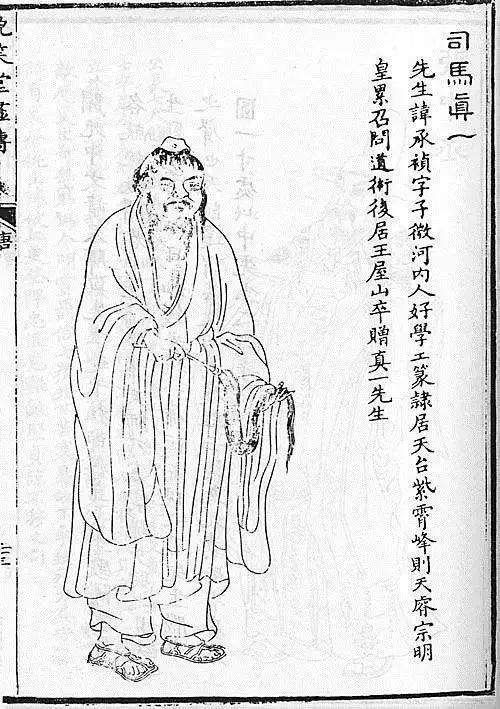 司馬眞一
先生諱承禎字子微河内人好學工篆隷居天台紫霄峰則天睿宗明
皇累召問道術後居王屋山卒贈真一先生
晚笑堂畫傳
唐